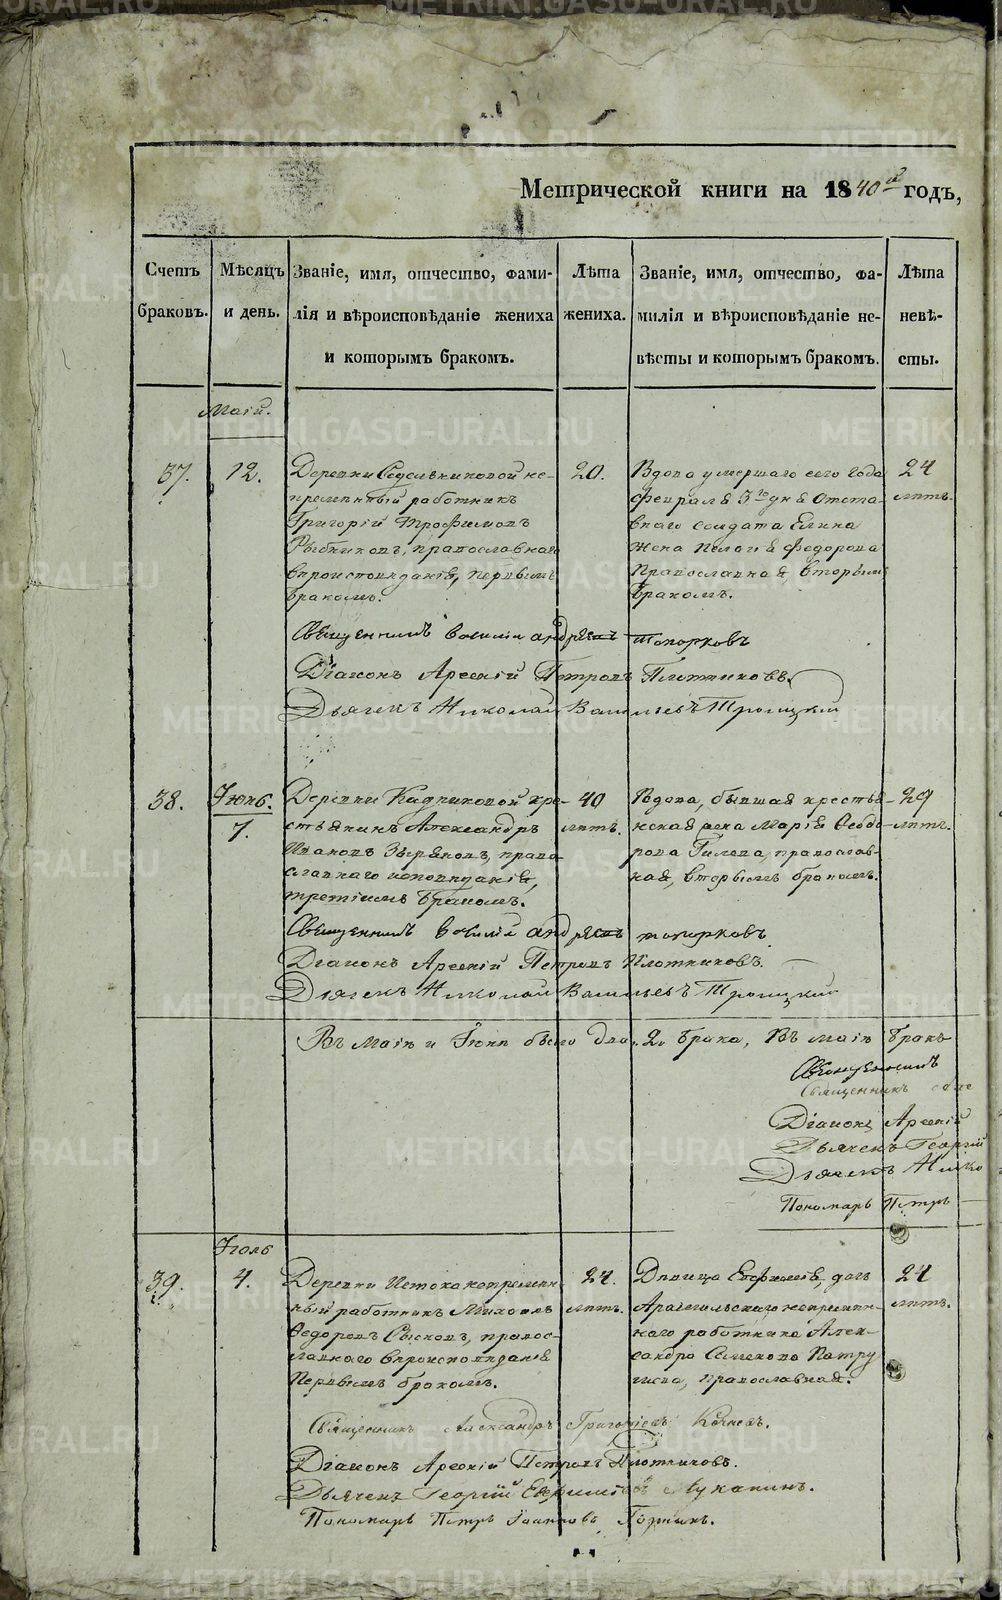 Метрической книги на 1840й годъ,
Счетъ браковъ.
Мѣсяцъ и день.
Званіе, имя, отчество, фами-
лія и вѣроисповѣданіе жениха
и которымъ бракомъ.
Лѣта жениха.
Званіе, имя, отчество, фа-
милія и вѣроисповѣданіе не-
вѣсты и которымъ бракомъ.
Лѣта невѣ-
сты.
Маій.
37.
12.
Деревни Седельниковой не-
премѣнный работникъ
Григорій Трофимовъ
Рыбниковъ, православнаго
вѣроисповѣданія, первымъ
бракомъ.
20.
Вдова умершаго сего года
февраля 3го дня отста-
внаго солдата
жена Федорова
Православная, вторымъ
бракомъ.
24
лѣтъ.
Священникъ Василій Андреевъ Топорковъ
Діаконъ Арсеній Петровъ Плотниковъ.
Дьячекъ Николай Васильевъ Троицкій
38.
Іюнь.
7.
Деревни Кадниковой кре-
стьянинъ Александръ
Ивановъ Зыряновъ, право-
славнаго исповѣданія,
третіимъ бракомъ.
40
лѣтъ.
Вдова, бывшая крестья-
нская жена Марія Ѳедо-
рова Гилева, православ-
ная, вторымъ бракомъ.
29
лѣтъ.
Священникъ Василій Андреевъ Топорковъ
Діаконъ Арсеній Петровъ Плотниковъ.
Дьячекъ Николай Васильевъ Троицкій
Въ Маіѣ и Іюнѣ было два, 2. брака, Въ маіѣ бракъ
Священникъ
Священникъ
Діаконъ Арсеній
Дьячекъ Георгій
Дьячекъ Нико
Пономарь Петръ
Іюль
39.
4.
Деревни Истока непремѣн-
ный работникъ Михаилъ
Ѳедоровъ Сысковъ, правос-
лавнаго вѣроисповѣданія
Первымъ бракомъ.
24.
лѣтъ.
Дѣвица Евфимія, дочь
Арамильскаго непремѣн-
наго работника Алек-
сандра Семенова Патру
шева, православная.
24
лѣтъ.
Священникъ Александръ Григорьевъ
Діаконъ Арсеній Петровъ Плотниковъ.
Дьячекъ Георгій Евфиміевъ Луканинъ.
Пономарь Петръ Іоанновъ
METRIKI.GASO-URAL.RU